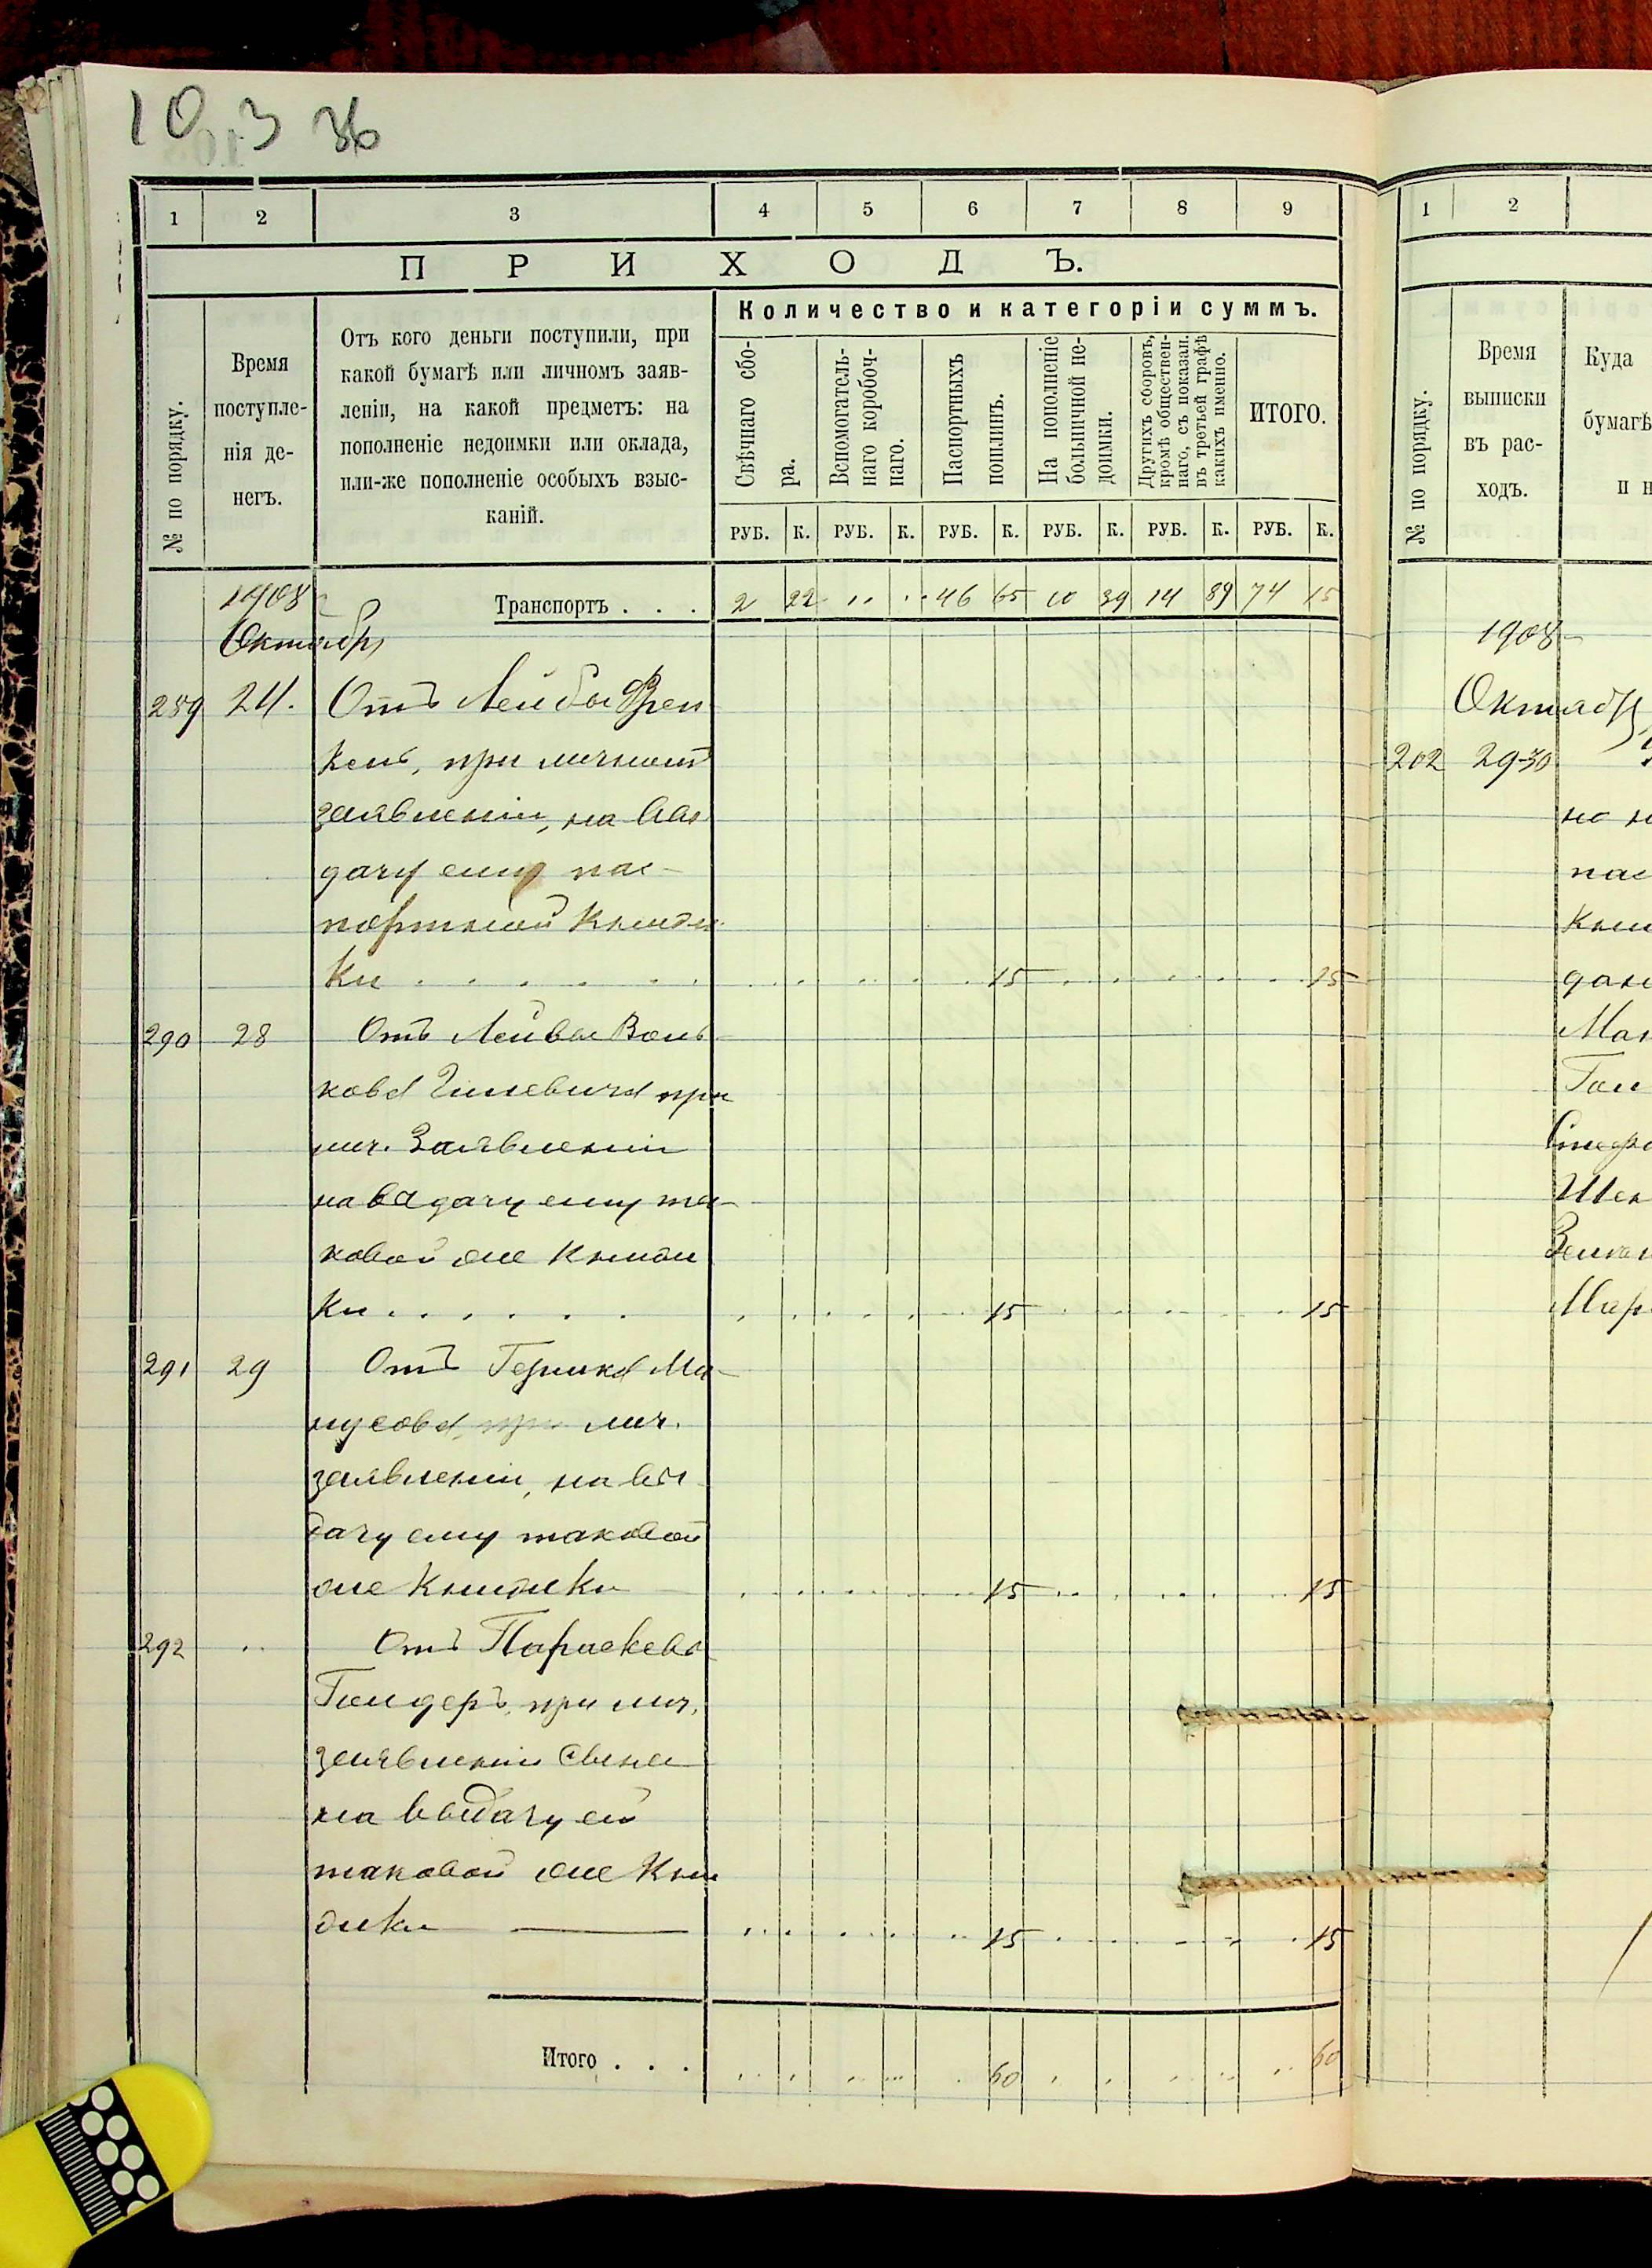 103 36
1 2 3 4 5 6 7 8 9
ПРИХОДЪ.
№ по порядку.
Время
поступле-
нія де-
негъ.
Отъ кого деньги поступили, при
какой бумагѣ или личномъ заяв-
леніи, на какой предметъ: на
пополненіе недоимки или оклада,
или-же пополненіе особыхъ взыс-
каній.
Количество и категоріи суммъ.
Свѣчнаго сбо-
ра.
Вспомогатель-
наго коробоч-
наго.
Паспортныхъ
пошлинъ.
На пополненіе
больничной не-
доимки.
Другихъ сборовъ,
кромѣ обществен-
наго, съ показан.
въ третьей графѣ
какихъ именно.
ИТОГО.
РУБ. К. РУБ. К. РУБ. К. РУБ. К. РУБ. К. РУБ. К.
1908
Транспортъ . . . 2 22 .. .. 46 65 10 39 14 89 74 15
Октябрь
289 24. Отъ Лейбы Френ
кель, при личномъ
заявленіи, на вы
дачу ему пас-
портной книж
ки . . . . . . 15 15
290 28 Отъ Лейбы Воль
кова Гилевича при
лич. заявленіи
на выдачу ему та-
ковой же книж
ки . . . . . 15 15
291 29 Отъ Гершка Ма-
нусова, при лич.
заявленіи, на вы
дачу ему таковой
же книжки 15 15
292 .. Отъ Параскева
при лич.
заявленіи
на выдачу ей
таковой же кни
жки — 15 15
Итого . . . 60 60
1 2
№ по порядку.
Время
выписки
въ рас-
ходъ.
Куда
бумагѣ
и н
1908
Октябр
202 29-30
но н
пас
кни
дан
Ман
Гол
Шен
Мар